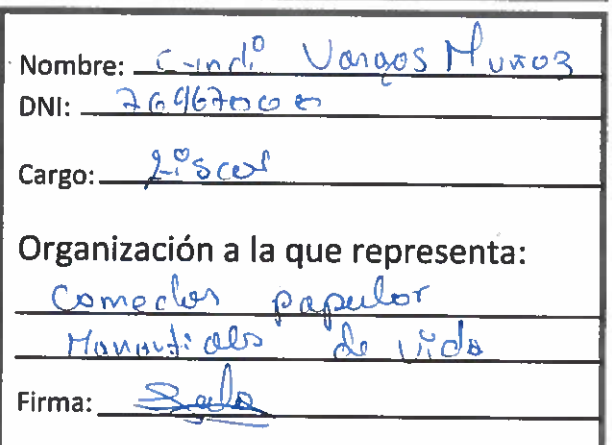 Nombre: Cindi Vargas Muñoz
DNI:
Cargo: Fiscal
Organización a la que representa:
Comedor popular
Manantials de vida
Firma: